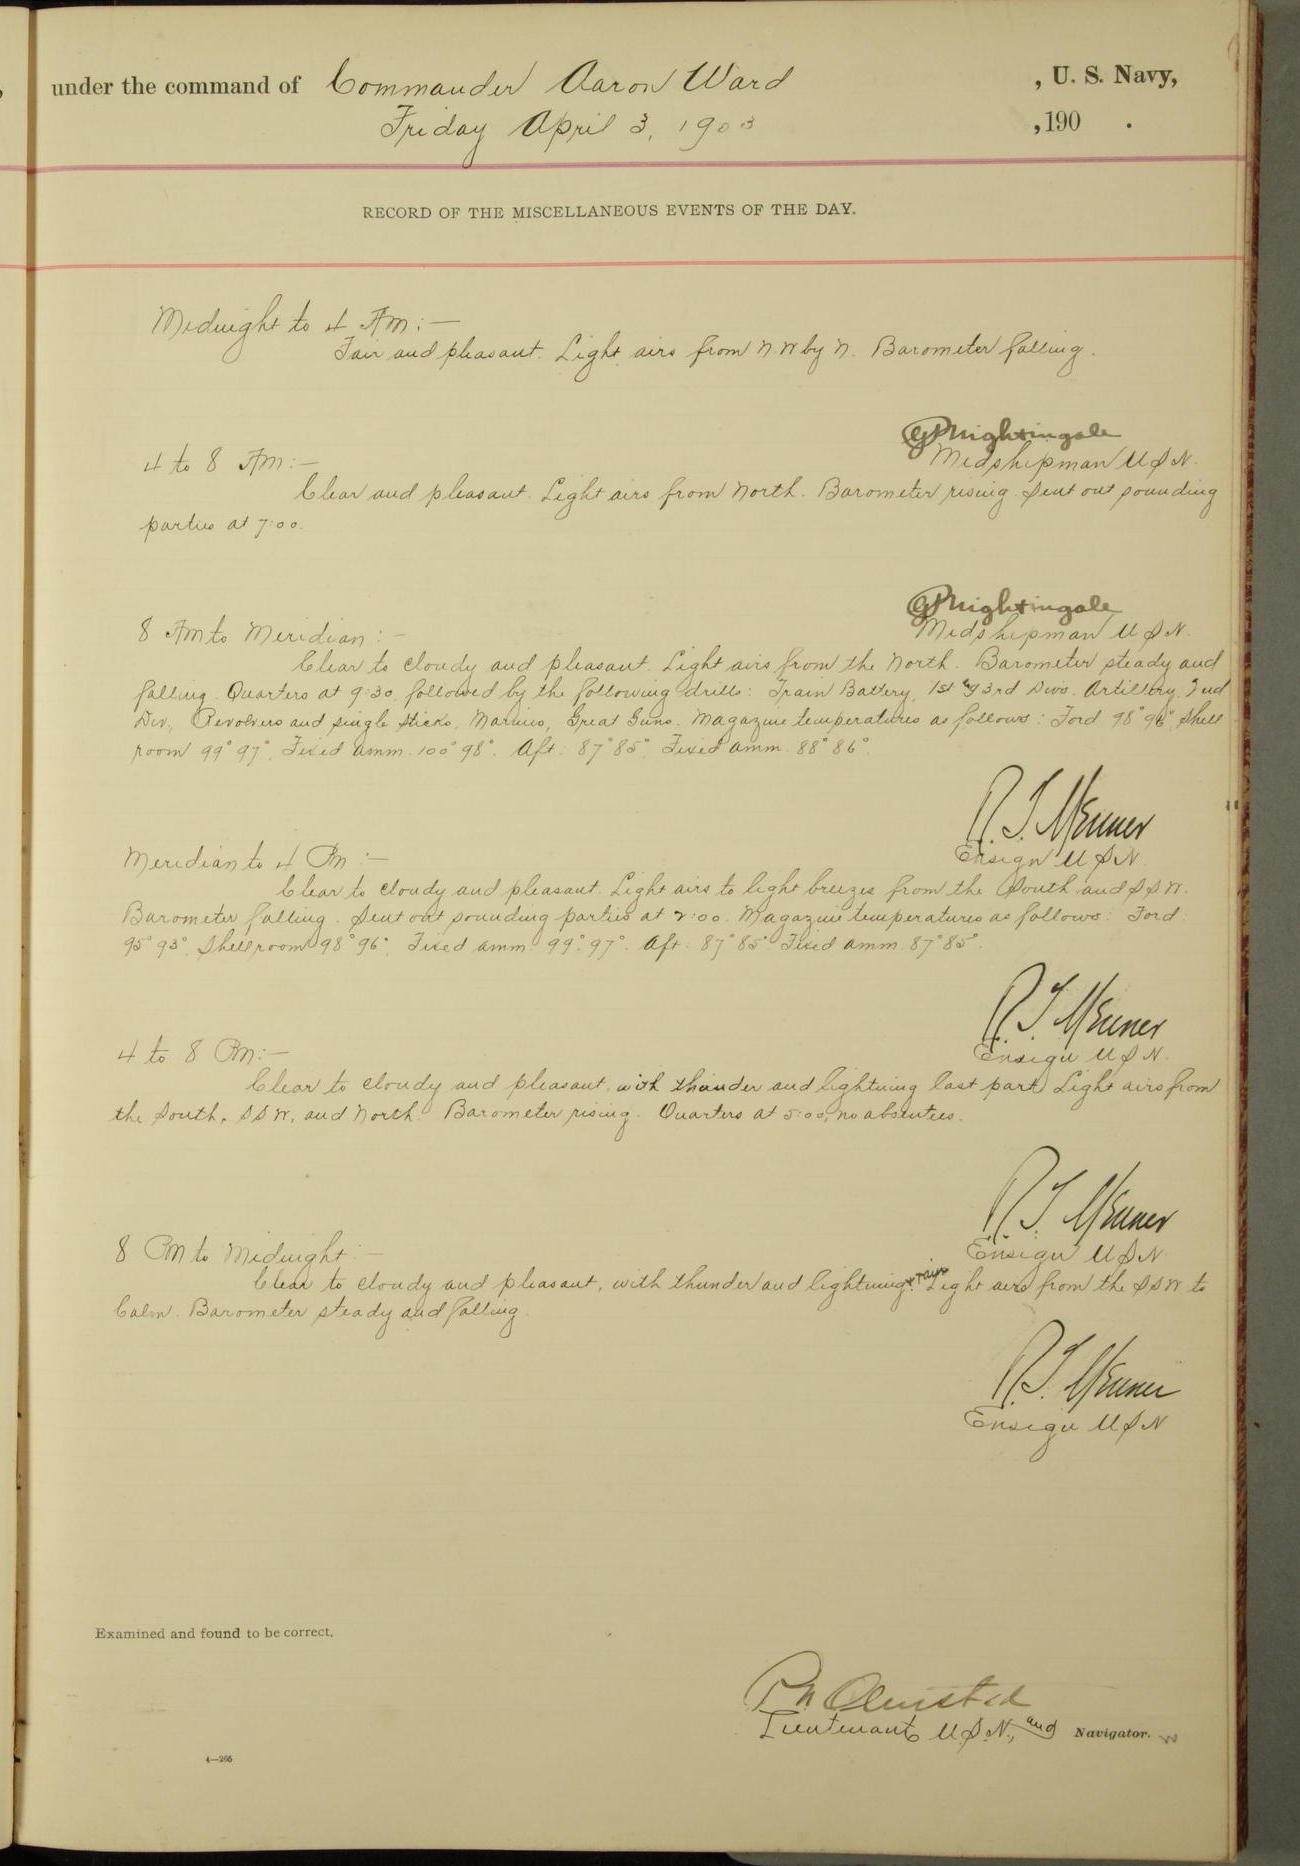 under the command of Commander Aaron Ward , U. S. Navy,
Friday April 3, 1903 , 190 .
RECORD OF THE MISCELLANEOUS EVENTS OF THE DAY.
Midnight to 4 AM:—
Fair and pleasant. Light airs from NW by N. Barometer falling.
Nightingale
Midshipman USN.
4 to 8 AM:—
Clear and pleasant. Light airs from North. Barometer rising. Sent out sounding
parties at 7:00.
Nightingale
Midshipman USN.
8 AM to Meridian:—
Clear to cloudy and pleasant. Light airs from the North. Barometer steady and
falling. Quarters at 9:30, followed by the following drills: Train Battery, 1st & 3rd Divs. Artillery, 2nd
Div., Revolvers and single sticks, Marines, Great Guns. Magazine temperatures as follows: Ford 98° 96°, Shell
room 99° 97°, Fixed amm. 100° 98°. Aft: 87° 85°, Fixed amm. 88° 86°.
Ensign USN.
Meridian to 4 PM:—
Clear to cloudy and pleasant. Light airs to light breezes from the South and SSW.
Barometer falling. Sent out sounding parties at 2:00. Magazine temperatures as follows: Ford
95° 93°, Shell room 98° 96°, Fixed amm. 99° 97°. Aft: 87° 85° Fixed amm. 87° 85°.
Ensign USN.
4 to 8 PM:—
Clear to cloudy and pleasant, with thunder and lightning last part. Light airs from
the South, SSW, and North. Barometer rising. Quarters at 5:00, no absentees.
Ensign USN
8 PM to Midnight:—
Clear to cloudy and pleasant, with thunder and lightning & rain. Light airs from the SSW to
Calm. Barometer steady and falling.
Ensign USN
Examined and found to be correct.
P N Olmsted
Lieutenant U.S.N., and Navigator.
4—266